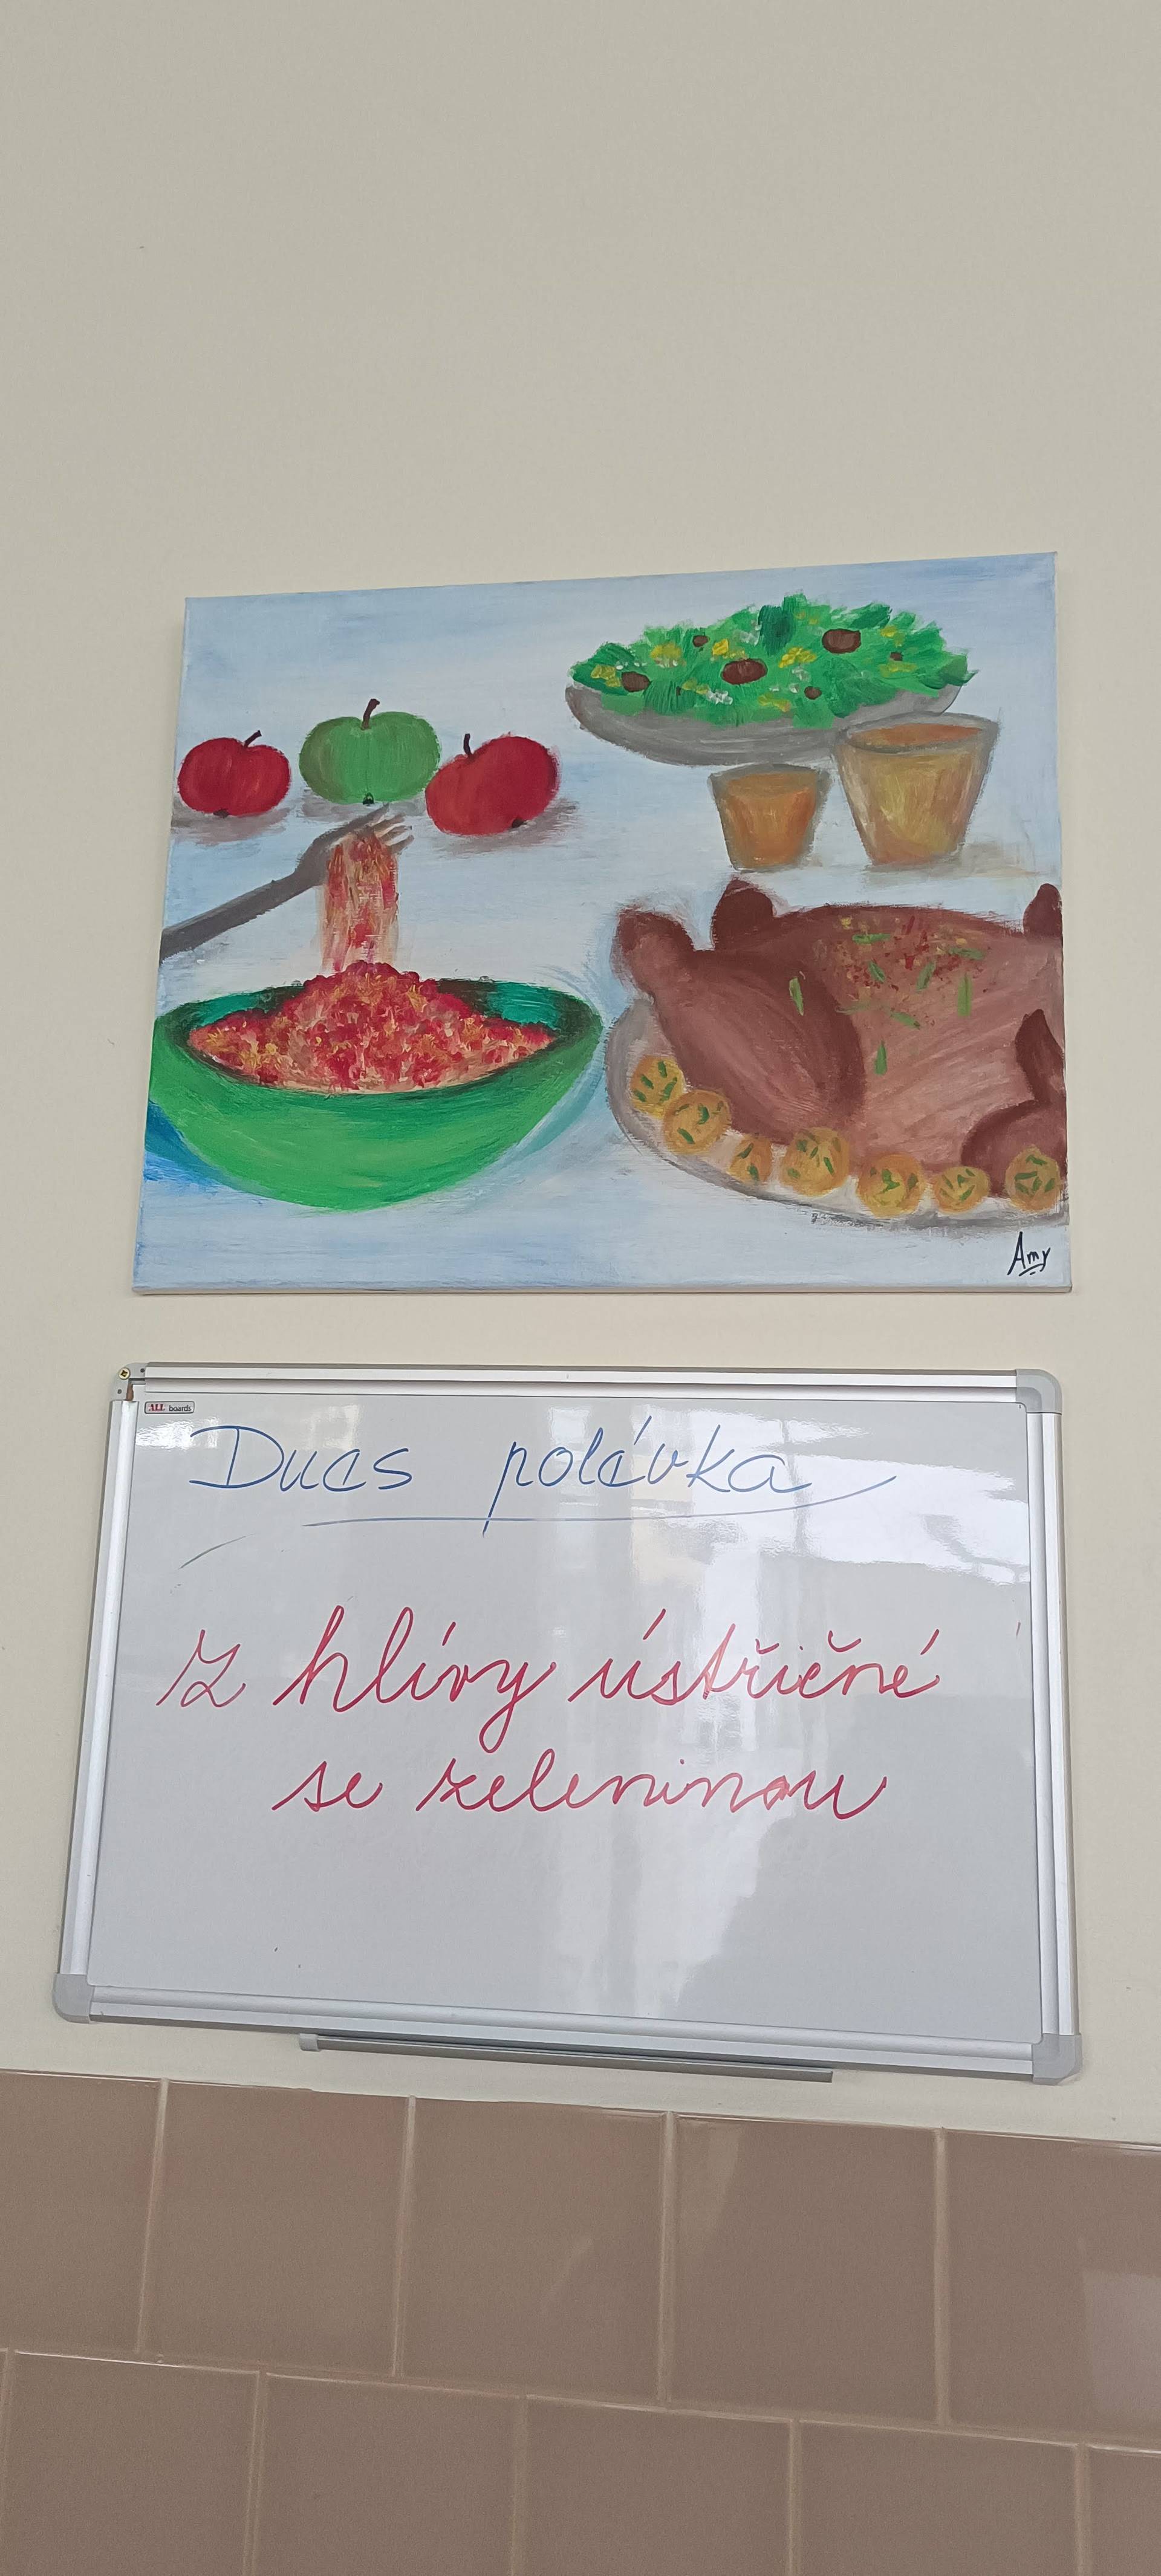 Amy
ALL boards
Dnes polévka
Z hlívy ústřičné
se zeleninou